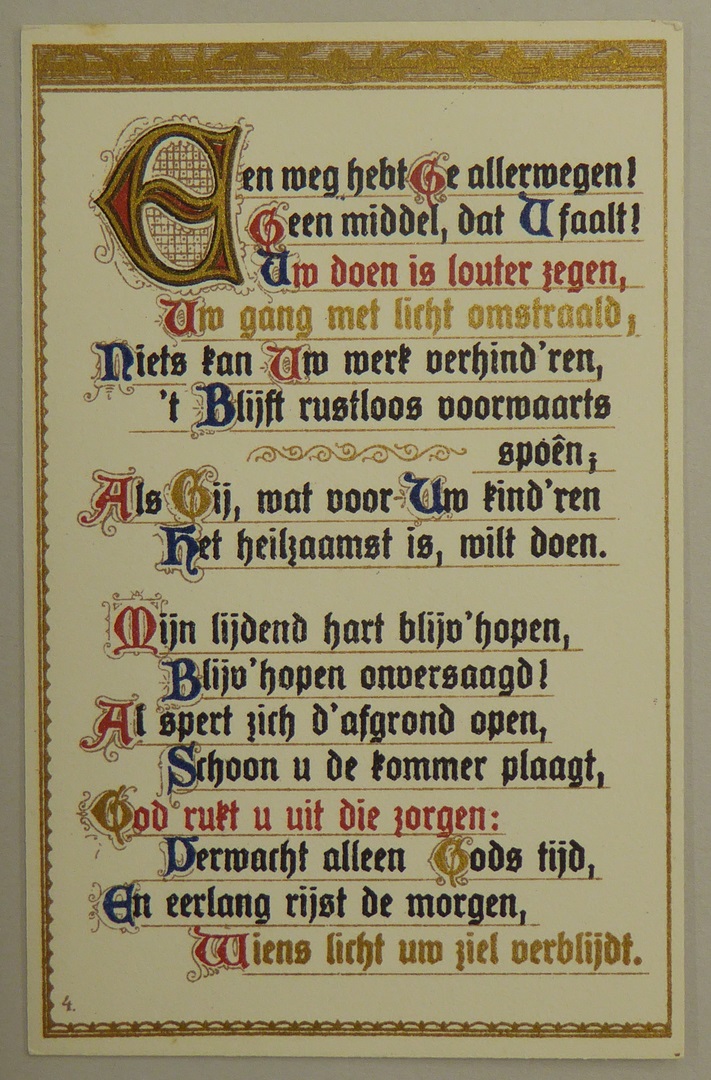 Een weg hebt Ge allerwegen!
Geen middel, dat U faalt!
Uw doen is louter zegen,
Uw gang met licht omstraald;
Niets kan Uw werk verhind'ren,
't Blijft rustloos voorwaarts
spoên;
Als Gij, wat voor Uw kind'ren
Het heilzaamst is, wilt doen.
Mijn lijdend hart blijv' hopen,
Blijv' hopen onversaagd!
Al spert zich d'afgrond open,
Schoon u de kommer plaagt,
God rukt u uit die zorgen:
Verwacht alleen Gods tijd,
En eerlang rijst de morgen,
Wiens licht uw ziel verblijdt.
4.